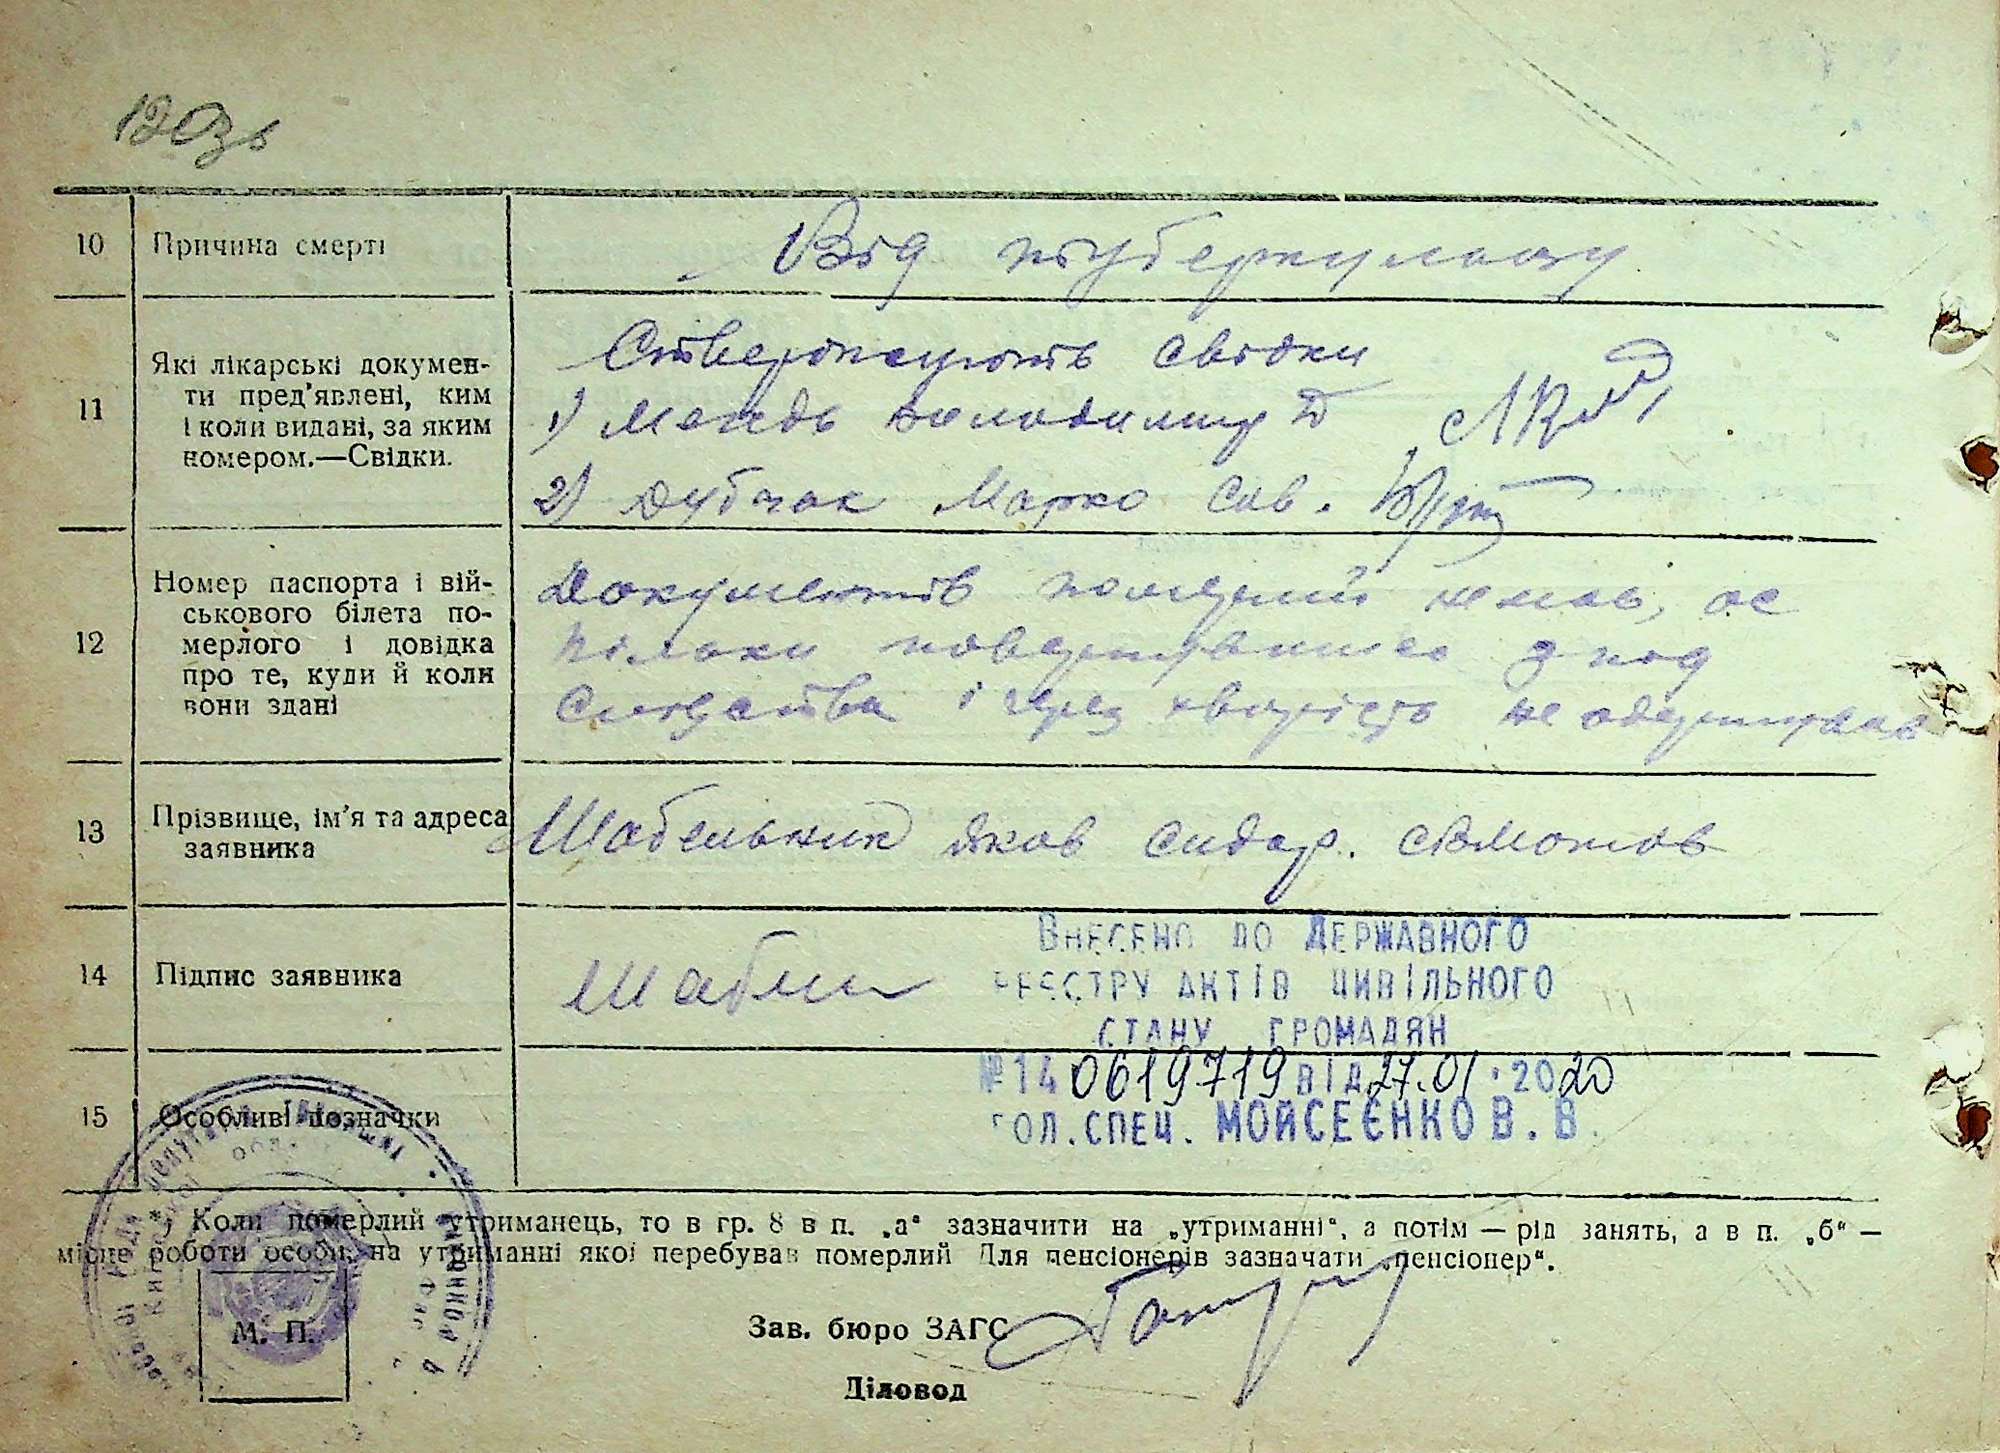 120зв
10 Причина смерті
Від туберкульозу
11 Які лікарські докумен-
ти пред'явлені, ким
і коли видані, за яким
номером.—Свідки.
Стверджують свідки
1) Мендь Володимир Д
2) Дубчак Марко Сав.
12 Номер паспорта і вій-
ськового білета по-
мерлого і довідка
про те, куди й коли
вони здані
Документів померший не мав, ос
тільки повернувшись з под
следства і через хворість не одержував
13 Прізвище, ім'я та адреса
заявника
Шабельник Яков Сидор.
14 Підпис заявника
ВНЕСЕНО ДО ДЕРЖАВНОГО
РЕЄСТРУ АКТІВ ЦИВІЛЬНОГО
СТАНУ ГРОМАДЯН
№ 14 0619719 від 27.01.2020
ГОЛ. СПЕЦ. МОЙСЕЄНКО В. В.
15 Особливі позначки
*) Коли померлий утриманець, то в гр. 8 в п. „а“ зазначити на „утриманні“, а потім — рід занять, а в п. „б“ —
місце роботи особи, на утриманні якої перебував померлий Для пенсіонерів зазначати „пенсіонер“.
М. П.
Зав. бюро ЗАГС
Діловод